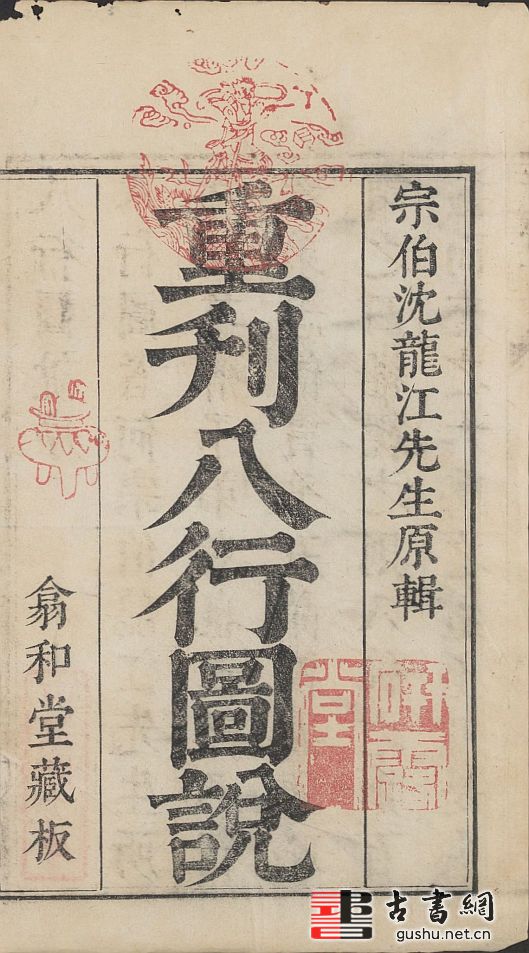 宗伯沈龍江先生原輯
重刊八行圖說
翕和堂藏板
古書網
gushu.net.cn